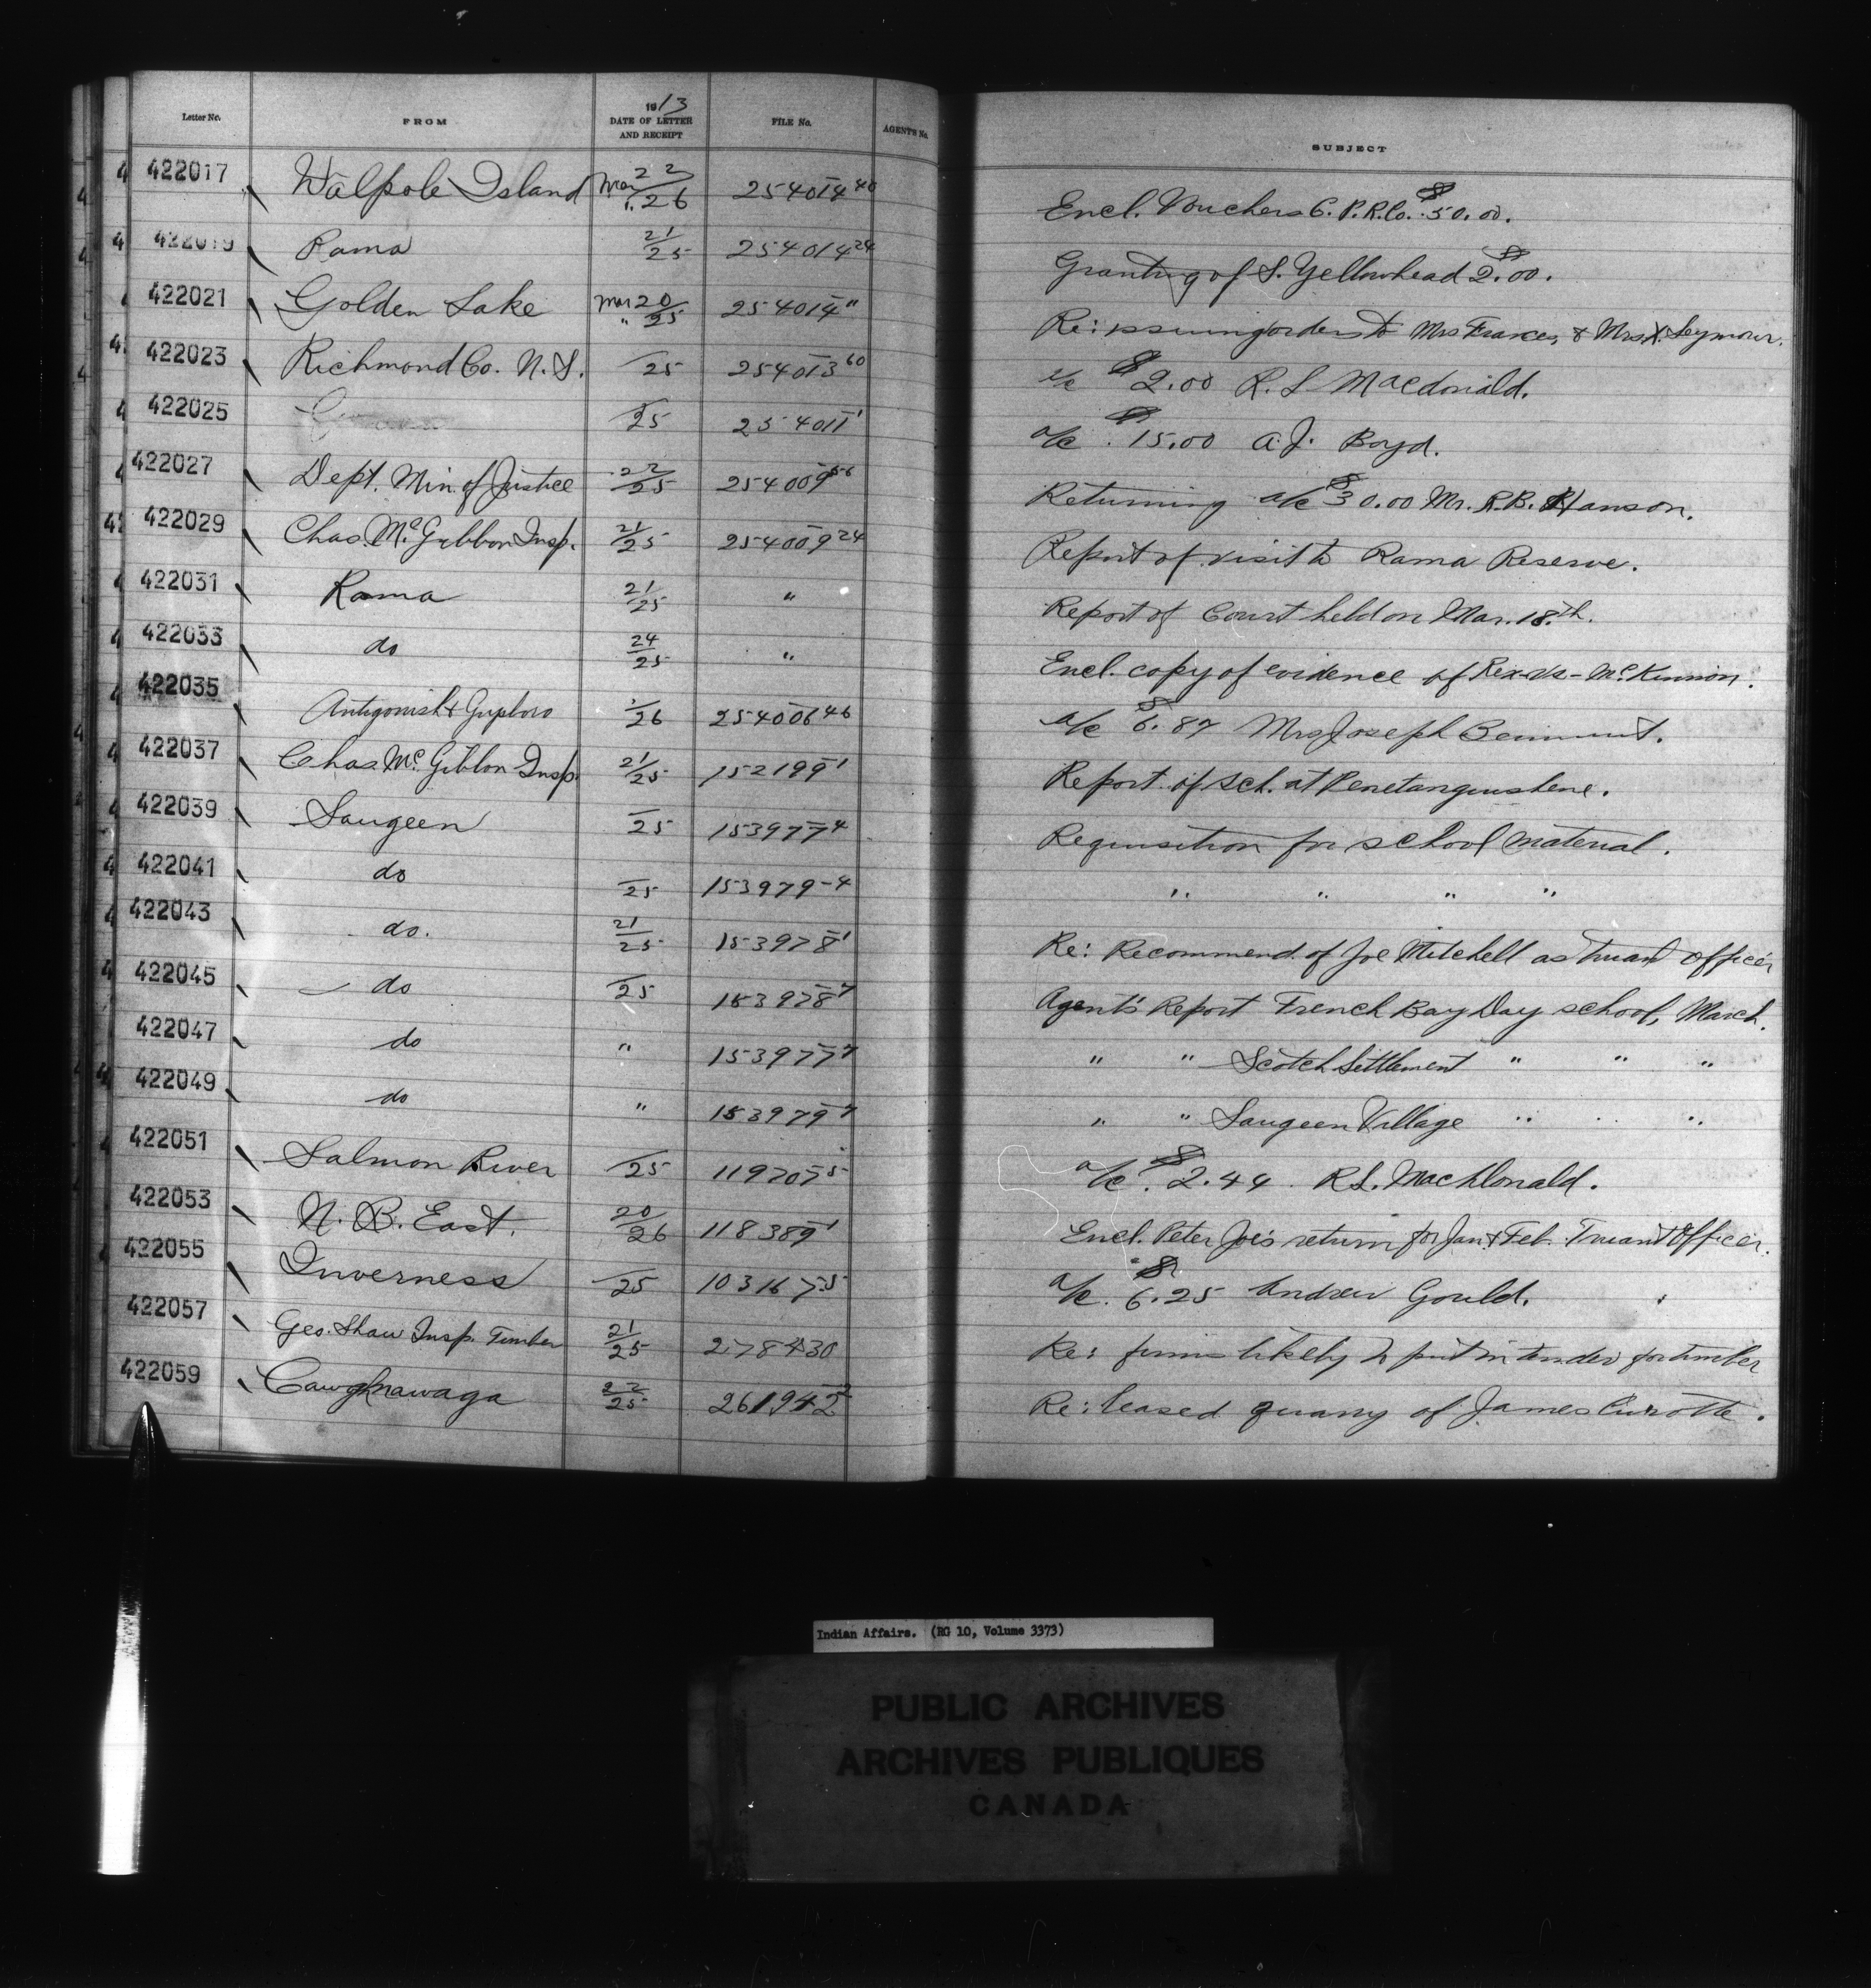 Letter No. FROM 1913 DATE OF LETTER AND RECEIPT FILE No. AGENT'S No. SUBJECT
422017 Walpole Island Mar 22/26 254014-40 Encl. Vouchers C.P.R.Co. $50.00.
422019 Rama 21/25 254014-24 Granting of S. Yellowhead $2.00.
422021 Golden Lake Mar 20/" 25 254014-11 Re: issuing orders to Mrs Frances & Mrs X. Seymour.
422023 Richmond Co. N.S. /25 254013-60 a/c $2.00 R. L Macdonald.
422025 /25 254011-1 a/c $15.00 A. J. Boyd.
422027 Dept. Min. of Justice 22/25 254009-56 Returning a/c $30.00 Mr. R.B. Hanson.
422029 Chas. McGibbon Insp. 21/25 254009-24 Report of visit to Rama Reserve.
422031 Rama 21/25 " Report of Court held on Mar. 18th.
422033 do 24/25 " Encl. copy of evidence of Rex-vs-McKinnon.
422035 Antigonish & Guysboro /26 254006-46 a/c $6.87 Mrs Joseph
422037 Chas. McGibbon Insp. 21/25 152199-1 Report of Sch. at Penetanguishene.
422039 Saugeen /25 153977-4 Requisition for school material.
422041 do /25 153979-4 " " " "
422043 do. 21/25 153978-1 Re: Recommend. of Joe Mitchell as truant officer
422045 do /25 153978-7 Agent's Report French Bay Day school, March.
422047 do " 153977-7 " " Scotch Settlement " " "
422049 do " 153979-7 " " Saugeen Village " " "
422051 Salmon River /25 119707-5 a/c $2.44 R.L. MacDonald.
422053 N. B. East. 20/26 118389-1 Encl. Peter Joe's return for Jan & Feb. Truant Officer.
422055 Inverness /25 103167-5 a/c $6.25 Andrew Gould.
422057 Geo. Shaw Insp. Timber 21/25 278430 Re: firms likely to put in tender for timber
422059 Cawghnawaga 22/25 261942-2 Re: leased quarry of James Curotte.
Indian Affairs. (RG 10, Volume 3373)
PUBLIC ARCHIVES
ARCHIVES PUBLIQUES
CANADA